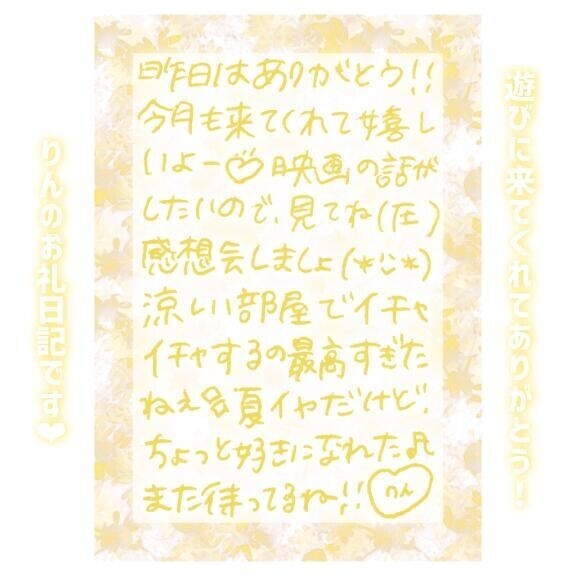 遊びに来てくれてありがとう!
昨日はありがとう!!
今月も来てくれて嬉し
いよー♡映画の話が
したいので、見てね(圧)
感想会しましょ(*¨*)
涼しい部屋でイチャ
イチャするの最高すぎた
ねえ 夏イヤだけど、
ちょっと好きになれた♫
また待ってるね!!
りん
りんのお礼日記です❤